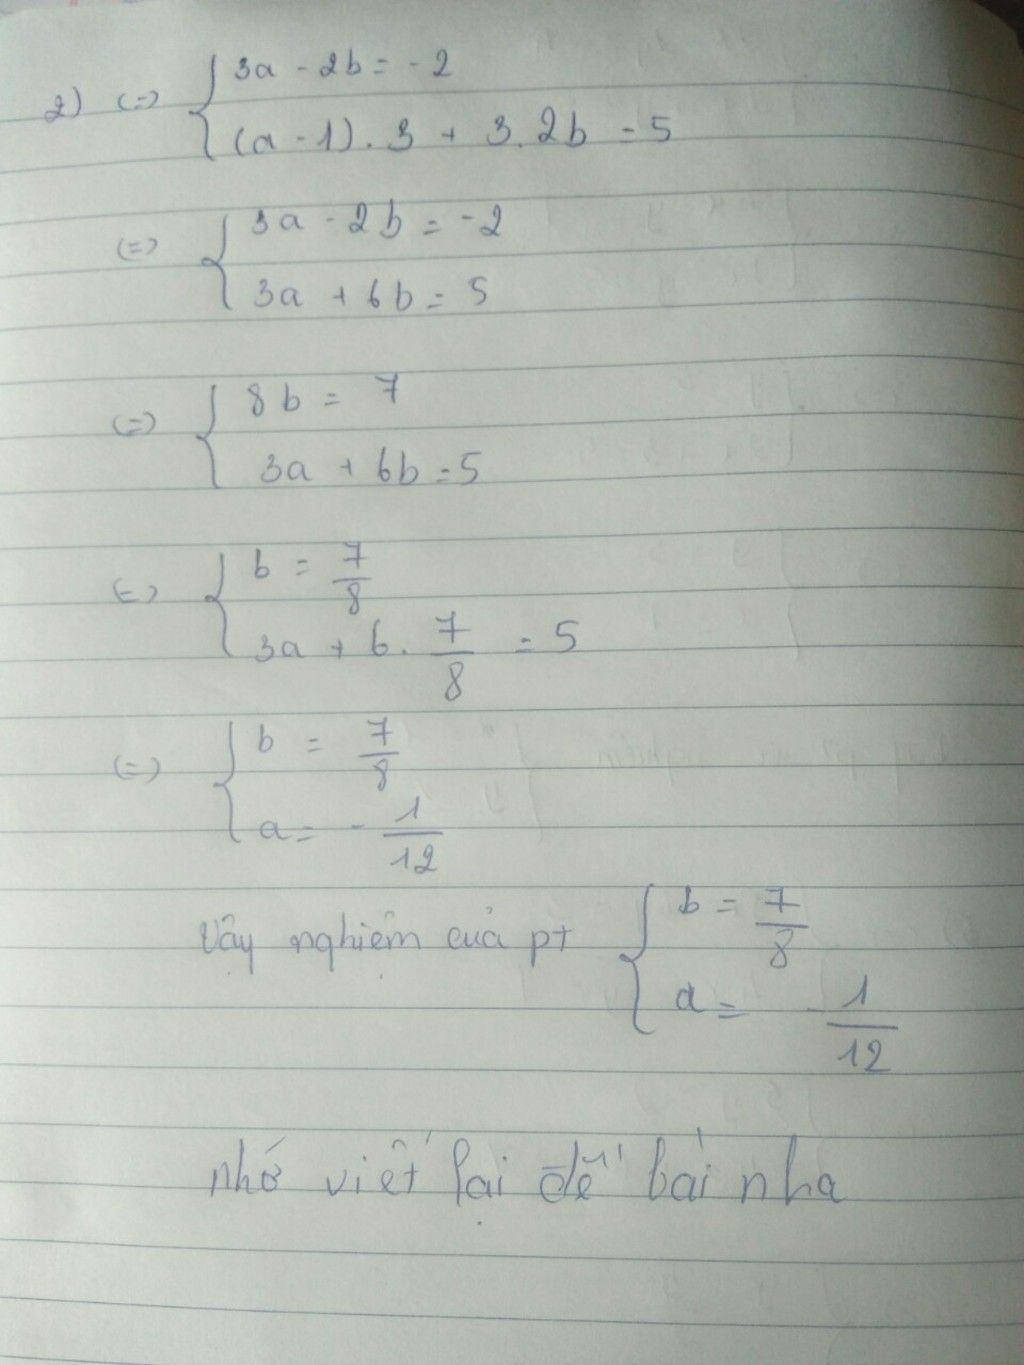 2) (=) { 3a - 2b = - 2
(a - 1) . 3 + 3 . 2b = 5
(=) { 3a - 2b = -2
3a + 6b = 5
(=) { 8b = 7
3a + 6b = 5
(=) { b = 7/8
3a + 6 . 7/8 = 5
(=) { b = 7/8
a = - 1/12
Vậy nghiệm của pt { b = 7/8
a = - 1/12
nhớ viết lại đề bài nha